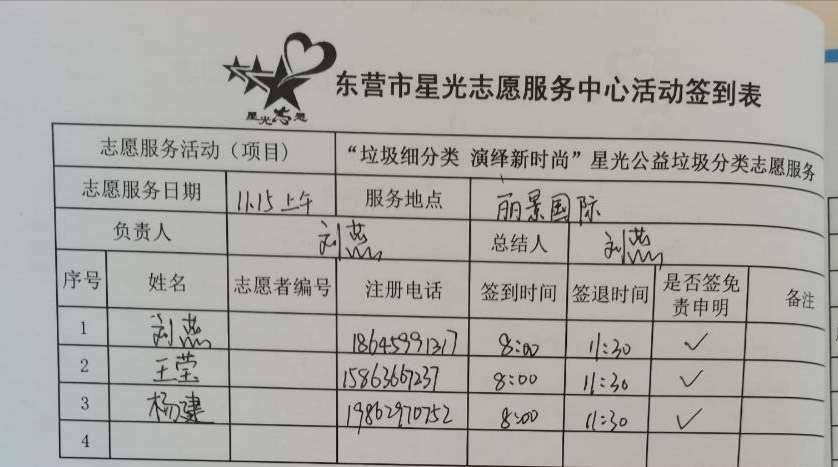 星光志愿
东营市星光志愿服务中心活动签到表
志愿服务活动（项目） “垃圾细分类 演绎新时尚”星光公益垃圾分类志愿服务
志愿服务日期 11.15上午 服务地点 丽景国际
负责人 刘燕 总结人 刘燕
序号 姓名 志愿者编号 注册电话 签到时间 签退时间 是否签免责申明 备注
1 刘燕 18645991317 8:00 11:30 ✓
2 王莹 15863667237 8:00 11:30 ✓
3 杨建 19862970752 8:00 11:30 ✓
4